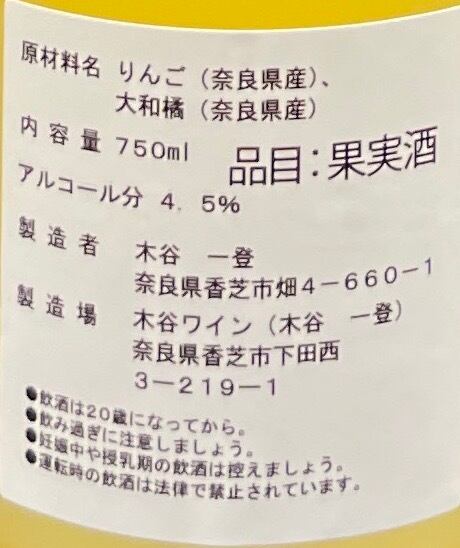 原材料名 りんご（奈良県産）、
大和橘（奈良県産）
内容量 750ml
品目：果実酒
アルコール分 4．5％
製造者 木谷　一登
奈良県香芝市畑4－660－1
製造場 木谷ワイン（木谷　一登）
奈良県香芝市下田西
3－219－1
●飲酒は20歳になってから。
●飲み過ぎに注意しましょう。
●妊娠中や授乳期の飲酒は控えましょう。
●運転時の飲酒は法律で禁止されています。